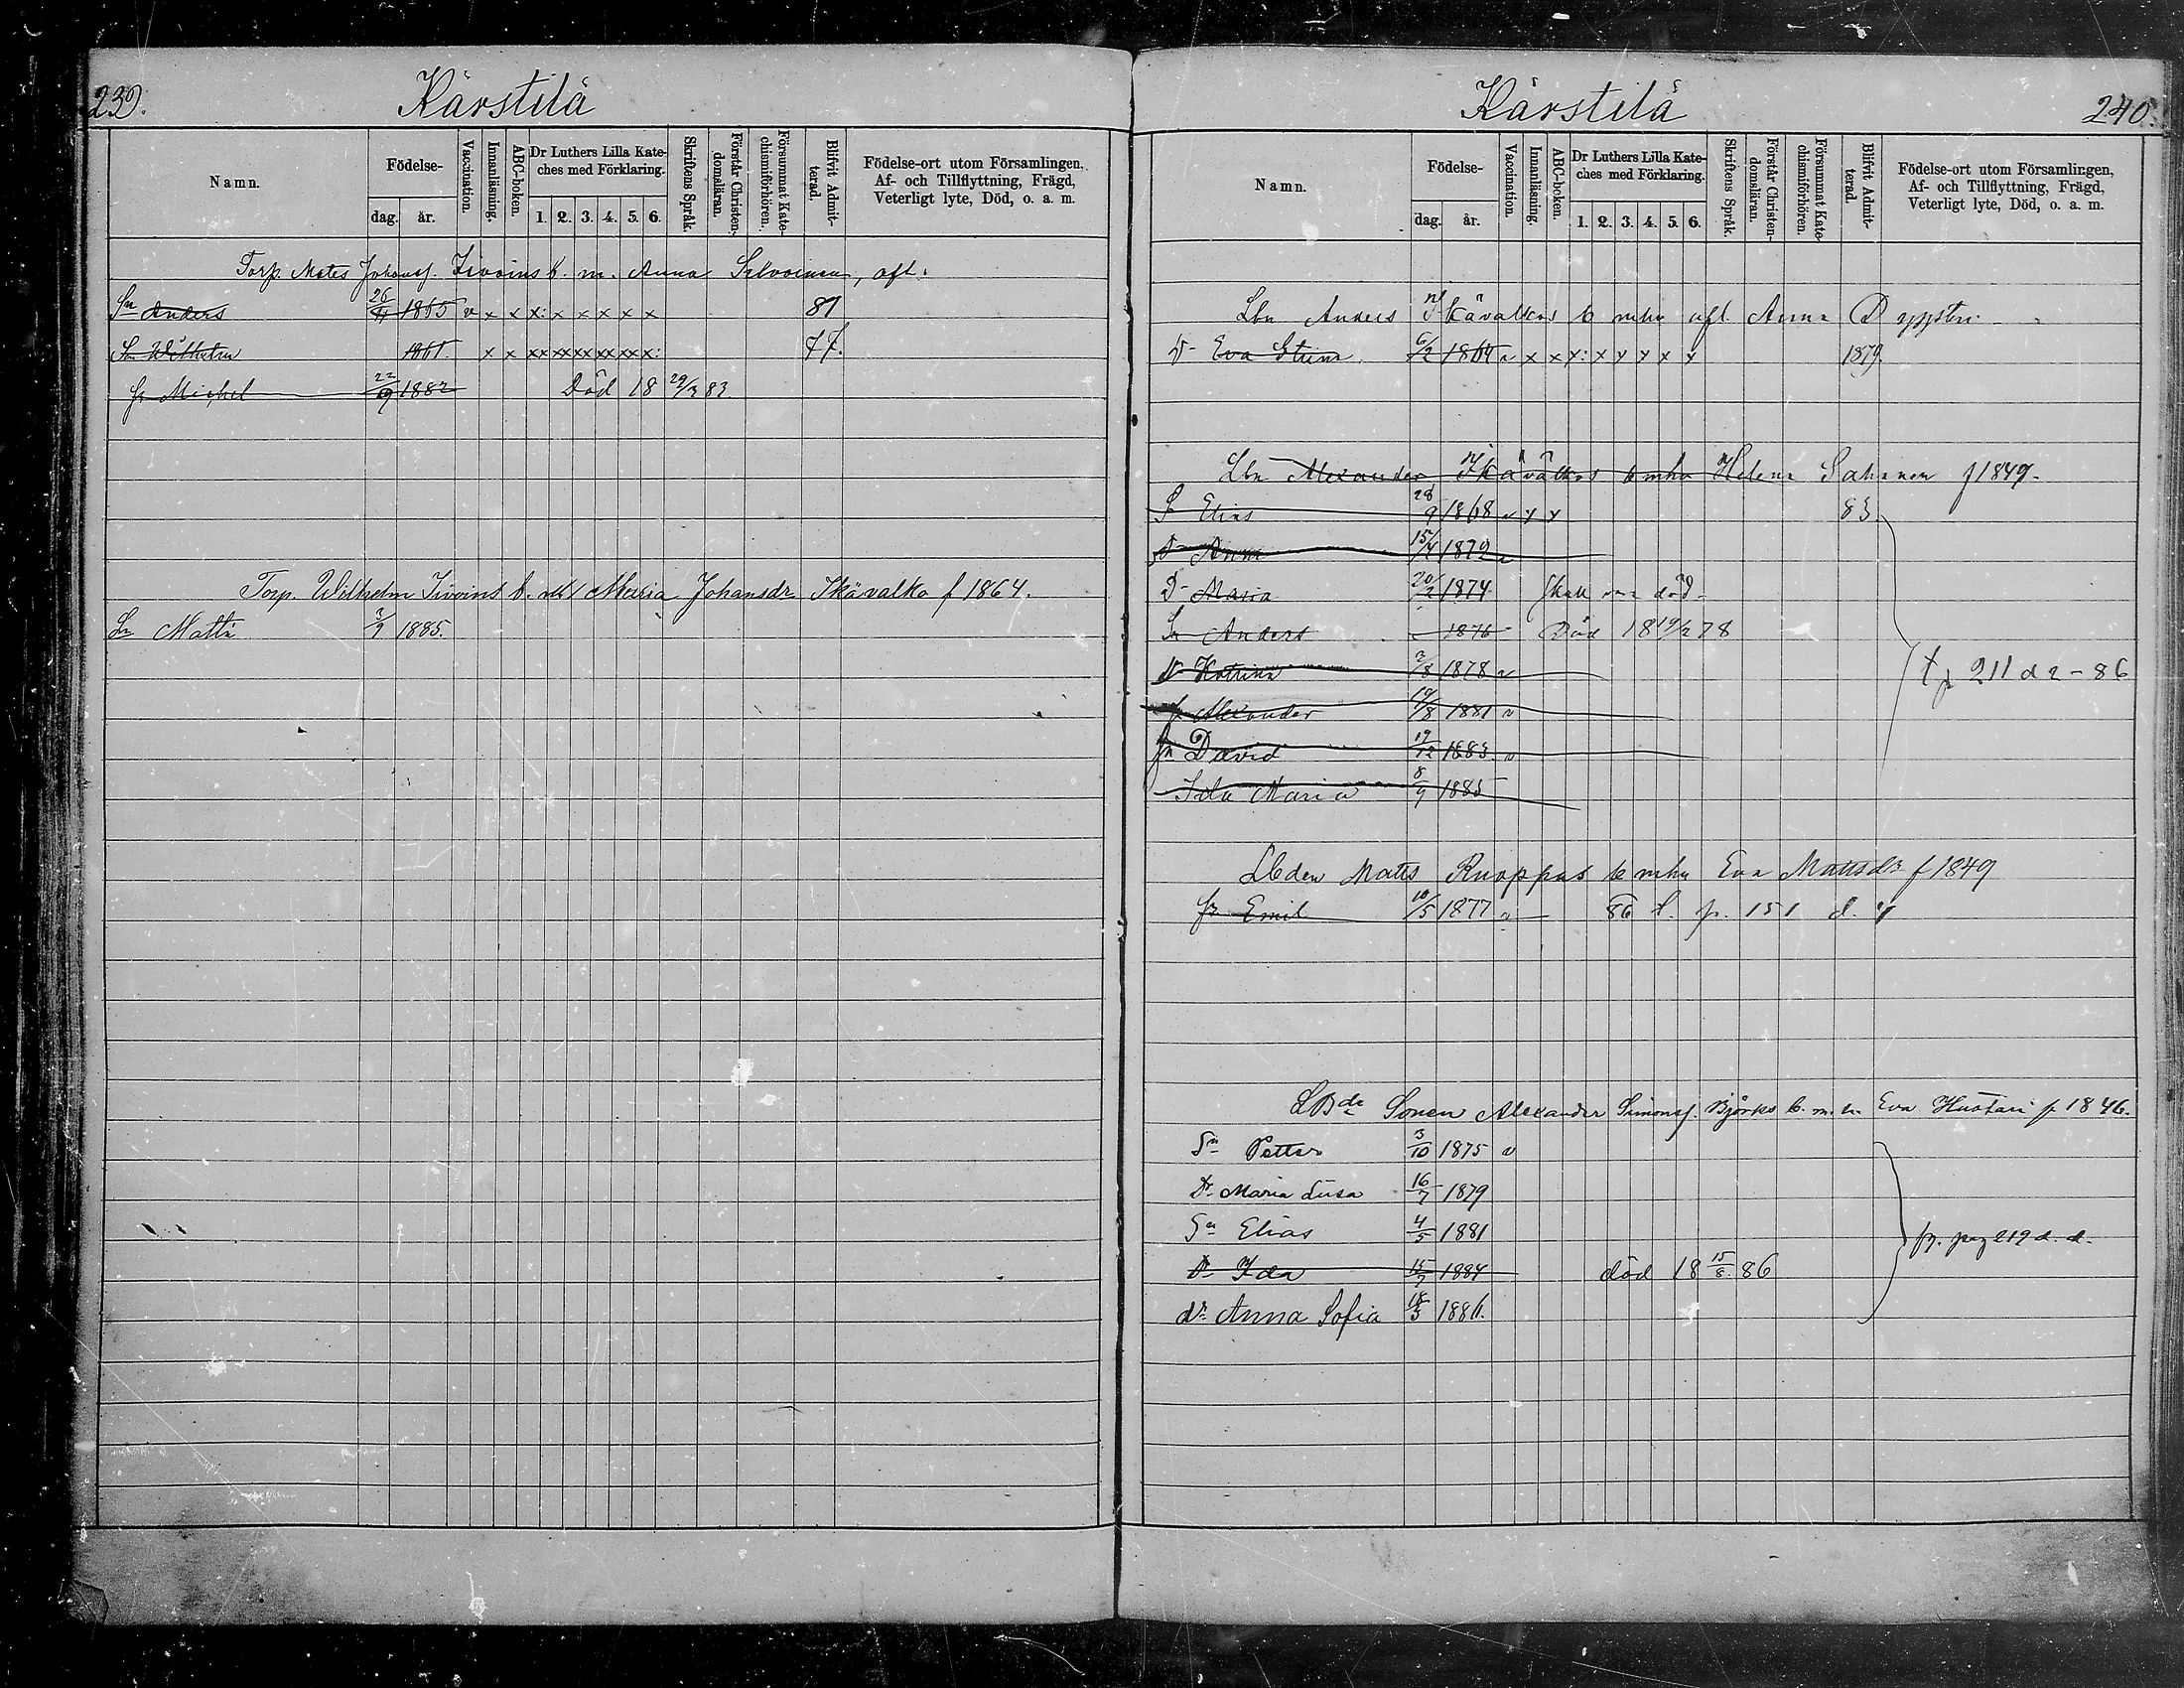 239.
Kärstilä
Namn.
Födelse-
dag.
år.
Vaccination.
Innanläsning.
ABC-boken.
Dr Luthers Lilla Kate-
ches med Förklaring.
1. 2. 3. 4. 5. 6.
Skriftens Språk.
Förstår Christen-
domsläran.
Försummat Kate-
chismiförhören.
Blifvit Admit-
terad.
Födelse-ort utom Församlingen,
Af- och Tillflyttning, Frägd,
Veterligt lyte, Död, o. a. m.
Torp. Mats Johanss. b. m. Anna
Sn Anders 26/11 1865 v x x x: x x x x x 81
Sn Wilhelm 1861. x x xx xx xx xx xx x: 77.
Sn Michel 22/9 1882 Död 18 29/3 83
Torp. Wilhelm b. m Maria Johansdr Ikävalko f 1864.
Sn Matti 3/9 1885.
Kärstilä
240.
Namn.
Födelse-
dag.
år.
Vaccination.
Innanläsning.
ABC-boken.
Dr Luthers Lilla Kate-
ches med Förklaring.
1. 2. 3. 4. 5. 6.
Skriftens Språk.
Förstår Christen-
domsläran.
Försummat Kate-
chismiförhören.
Blifvit Admit-
terad.
Födelse-ort utom Församlingen,
Af- och Tillflyttning, Frägd,
Veterligt lyte, Död, o. a. m.
Lbn Anders Ikävalkos b mhu afl. Anna
Dr Eva Stina 6/2 1864 v x x x: x x x x x 1879.
Lbn Alexander Ikävalkos b mhu Helena f 1849.
Sn Elias 28/9 1868 v x x 83
Dr Anna 15/4 1872 v
Dr Maria 20/2 1874 Skall vara död
Sn Anders 1876 Död 18 19/2 78
Dr Katrina 2/8 1878 v
t p 211 d 2 - 86
Sn Alexander 19/8 1881 v
Sn David 19/12 1883 v
Ida Maria 8/9 1885
Lbden Matts Ruoppas b mhu Eva Mattsdr f 1849
Sn Emil 10/5 1877 v 86 t. p. 151 d. 4
LBde Sonen Alexander Simonss. Björks b. m. h. Eva Huotari f 1846.
Sn Petter 3/10 1875 v
Dr Maria Lusa 16/7 1879
Sn Elias 4/5 1881
fr. pag 219 d. d.
Dr Ida 15/7 1884 död 18 15/8. 86
dr Anna Sofia 18/3 1886.